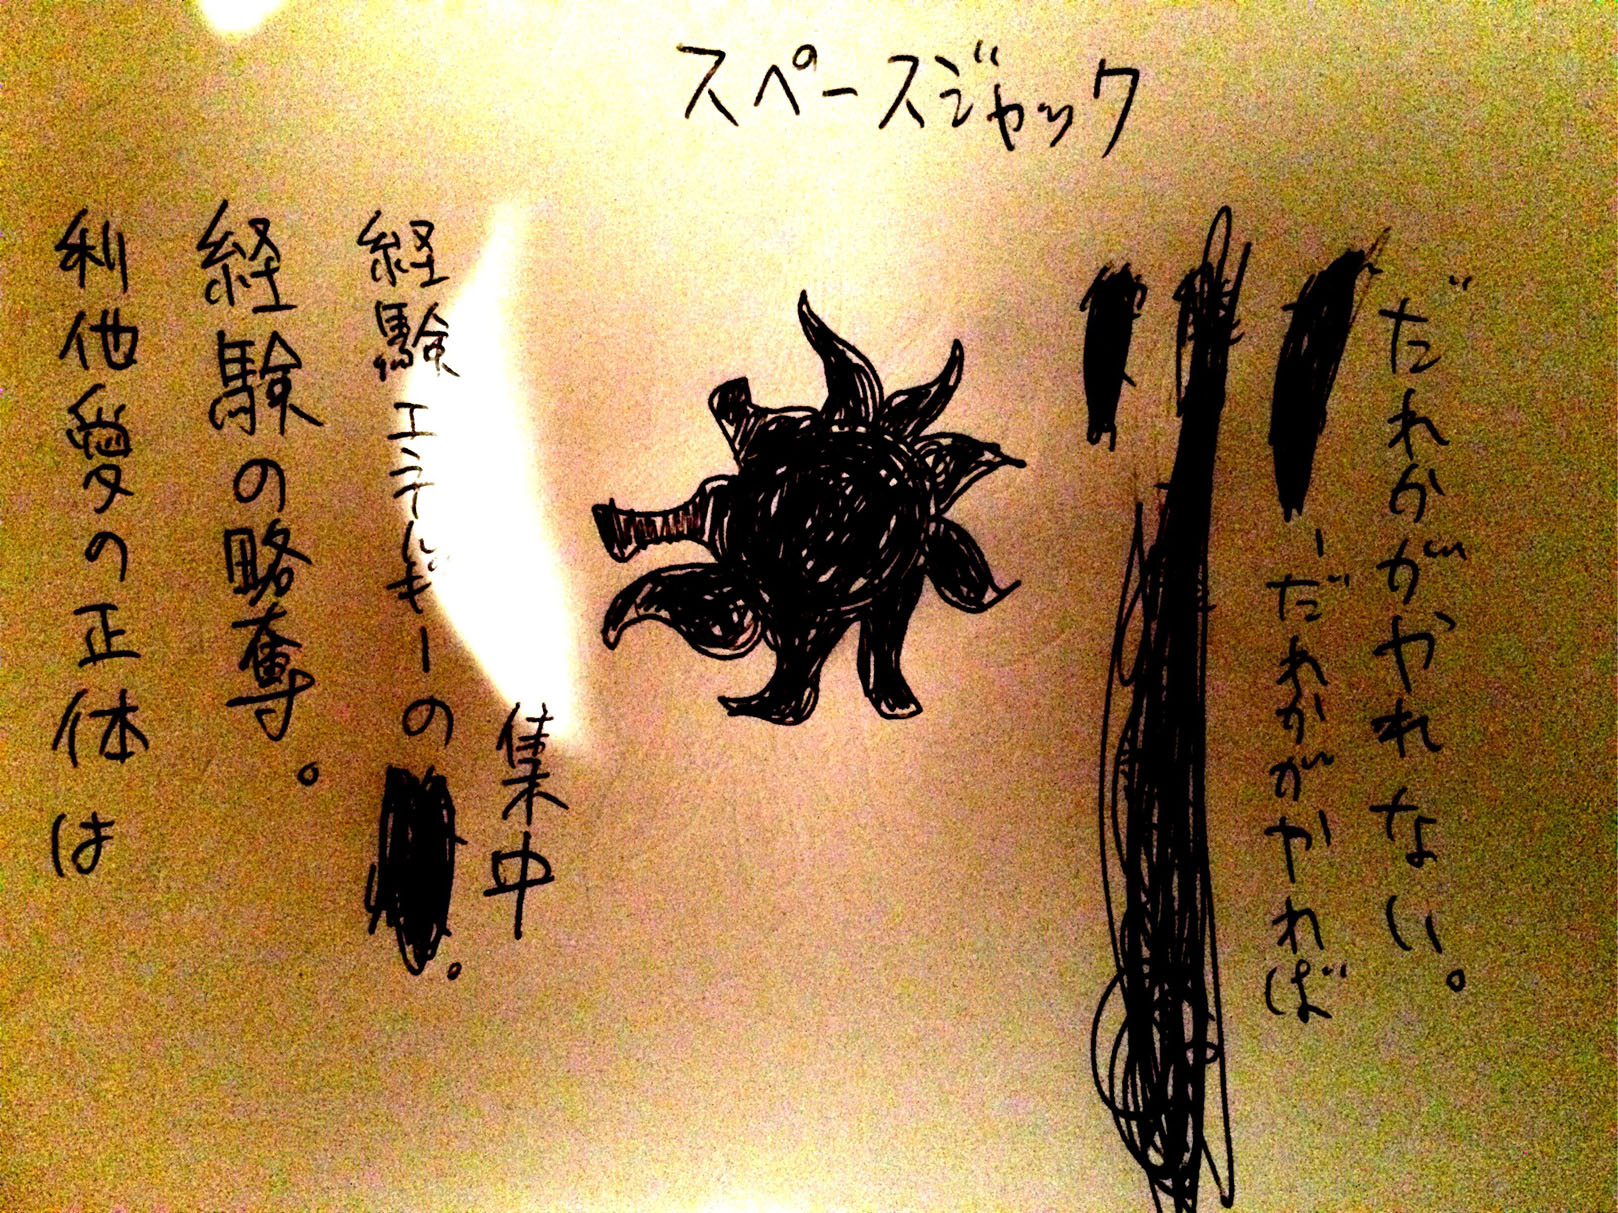 スペースジャック
だれかがやれば
だれかがやれない。
利他愛の正体は
経験の略奪。
経験エネルギーの
集中。